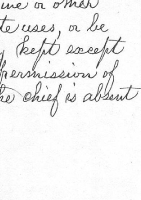 or other
uses, or be
kept except
permission of
he chief is absent